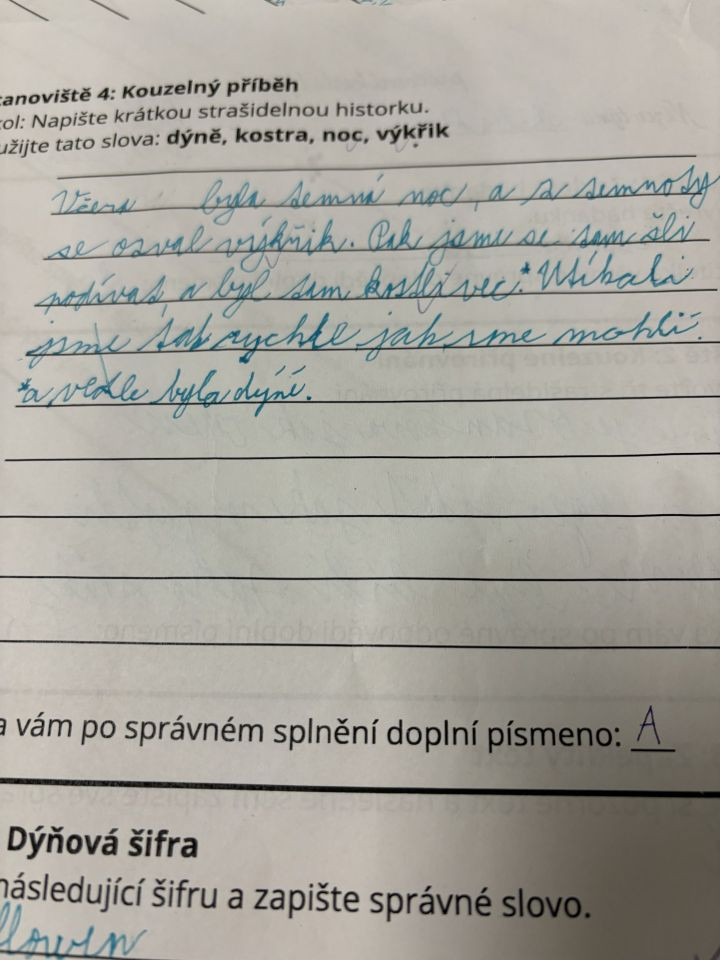 tanoviště 4: Kouzelný příběh
kol: Napište krátkou strašidelnou historku.
užijte tato slova: dýně, kostra, noc, výkřik
Včera byla temná noc, a z temnoty
se ozval výkřik. Pak jsme se tam šli
podívat, a byl tam kostlivec.* Utíkali
jsme tak rychle, jak jsme mohli.
*a vedle byla dýně.
a vám po správném splnění doplní písmeno: A
Dýňová šifra
následující šifru a zapište správné slovo.
lloween